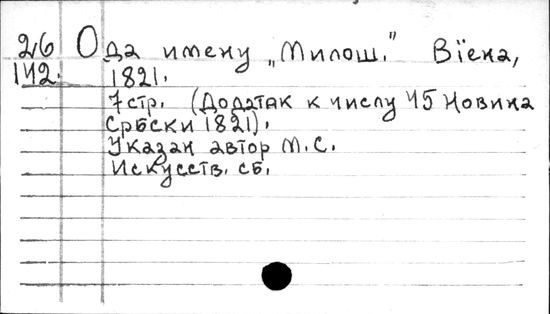 26 Ода имену „Милош." Вїена,
142. 1821.
7 стр. (Додатак к числу 45 Новина
Србски 1821).
Указан автор М.С.
Искусств. сб.